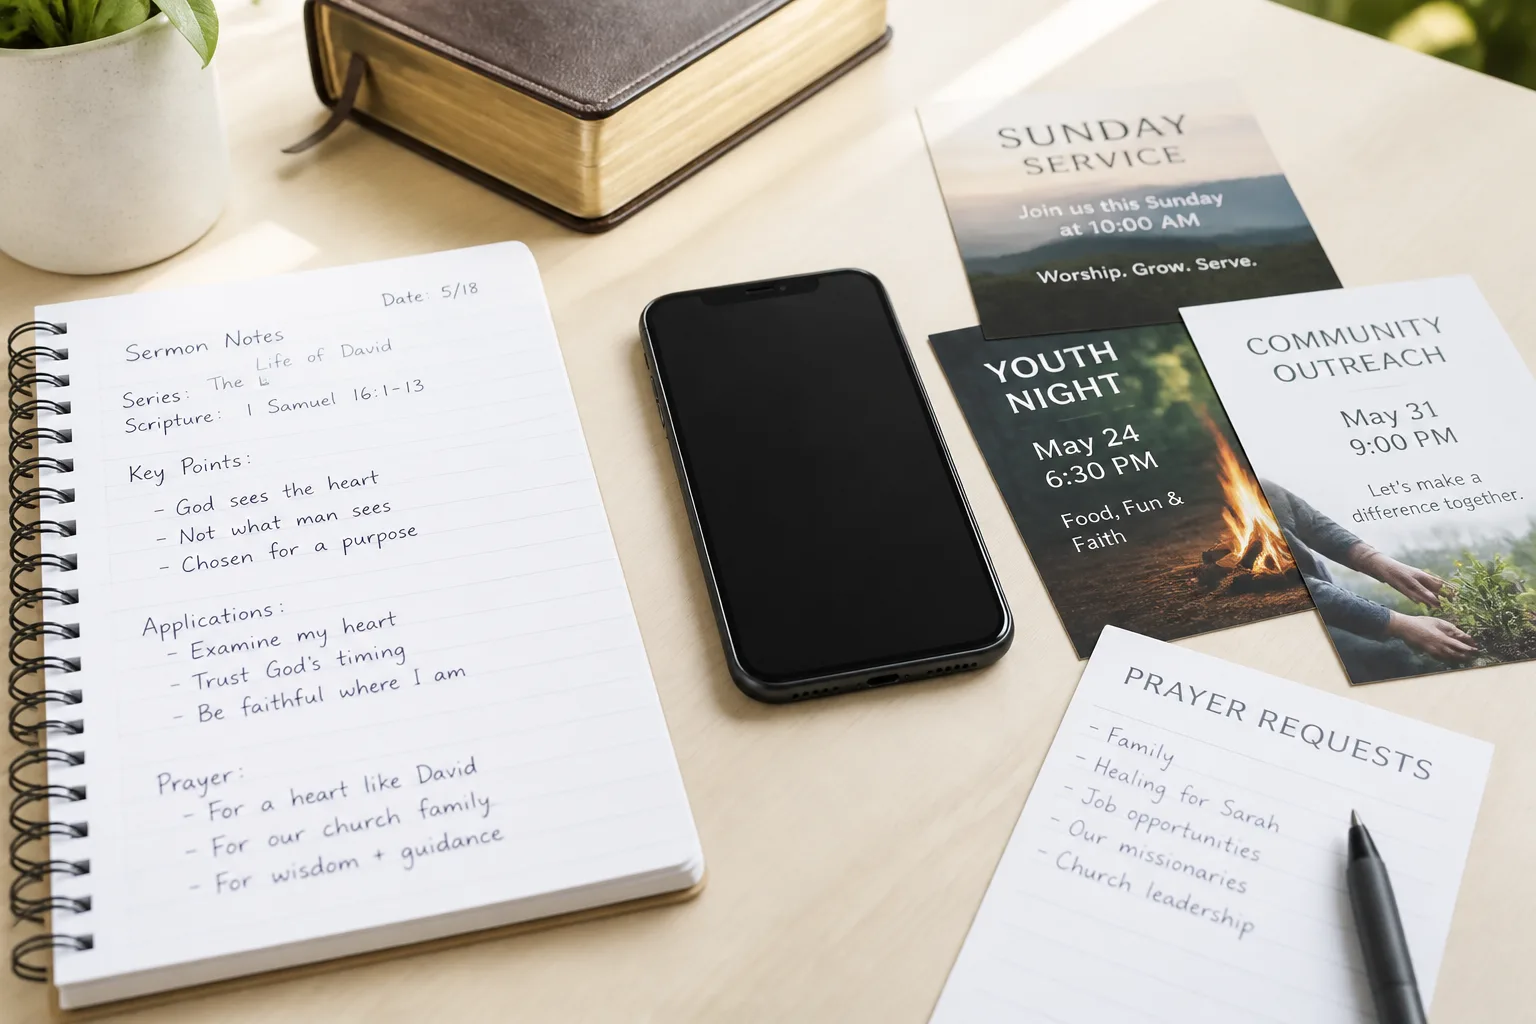 Date: 5/18
Sermon Notes
Series: The Life of David
Scripture: 1 Samuel 16:1-13
Key Points:
- God sees the heart
- Not what man sees
- Chosen for a purpose
Applications:
- Examine my heart
- Trust God's timing
- Be faithful where I am
Prayer:
- For a heart like David
- For our church family
- For wisdom + guidance
SUNDAY
SERVICE
Join us this Sunday
at 10:00 AM
Worship. Grow. Serve.
YOUTH
NIGHT
May 24
6:30 PM
Food, Fun &
Faith
COMMUNITY
OUTREACH
May 31
9:00 PM
Let's make a
difference together.
PRAYER REQUESTS
- Family
- Healing for Sarah
- Job opportunities
- Our missionaries
- Church leadership